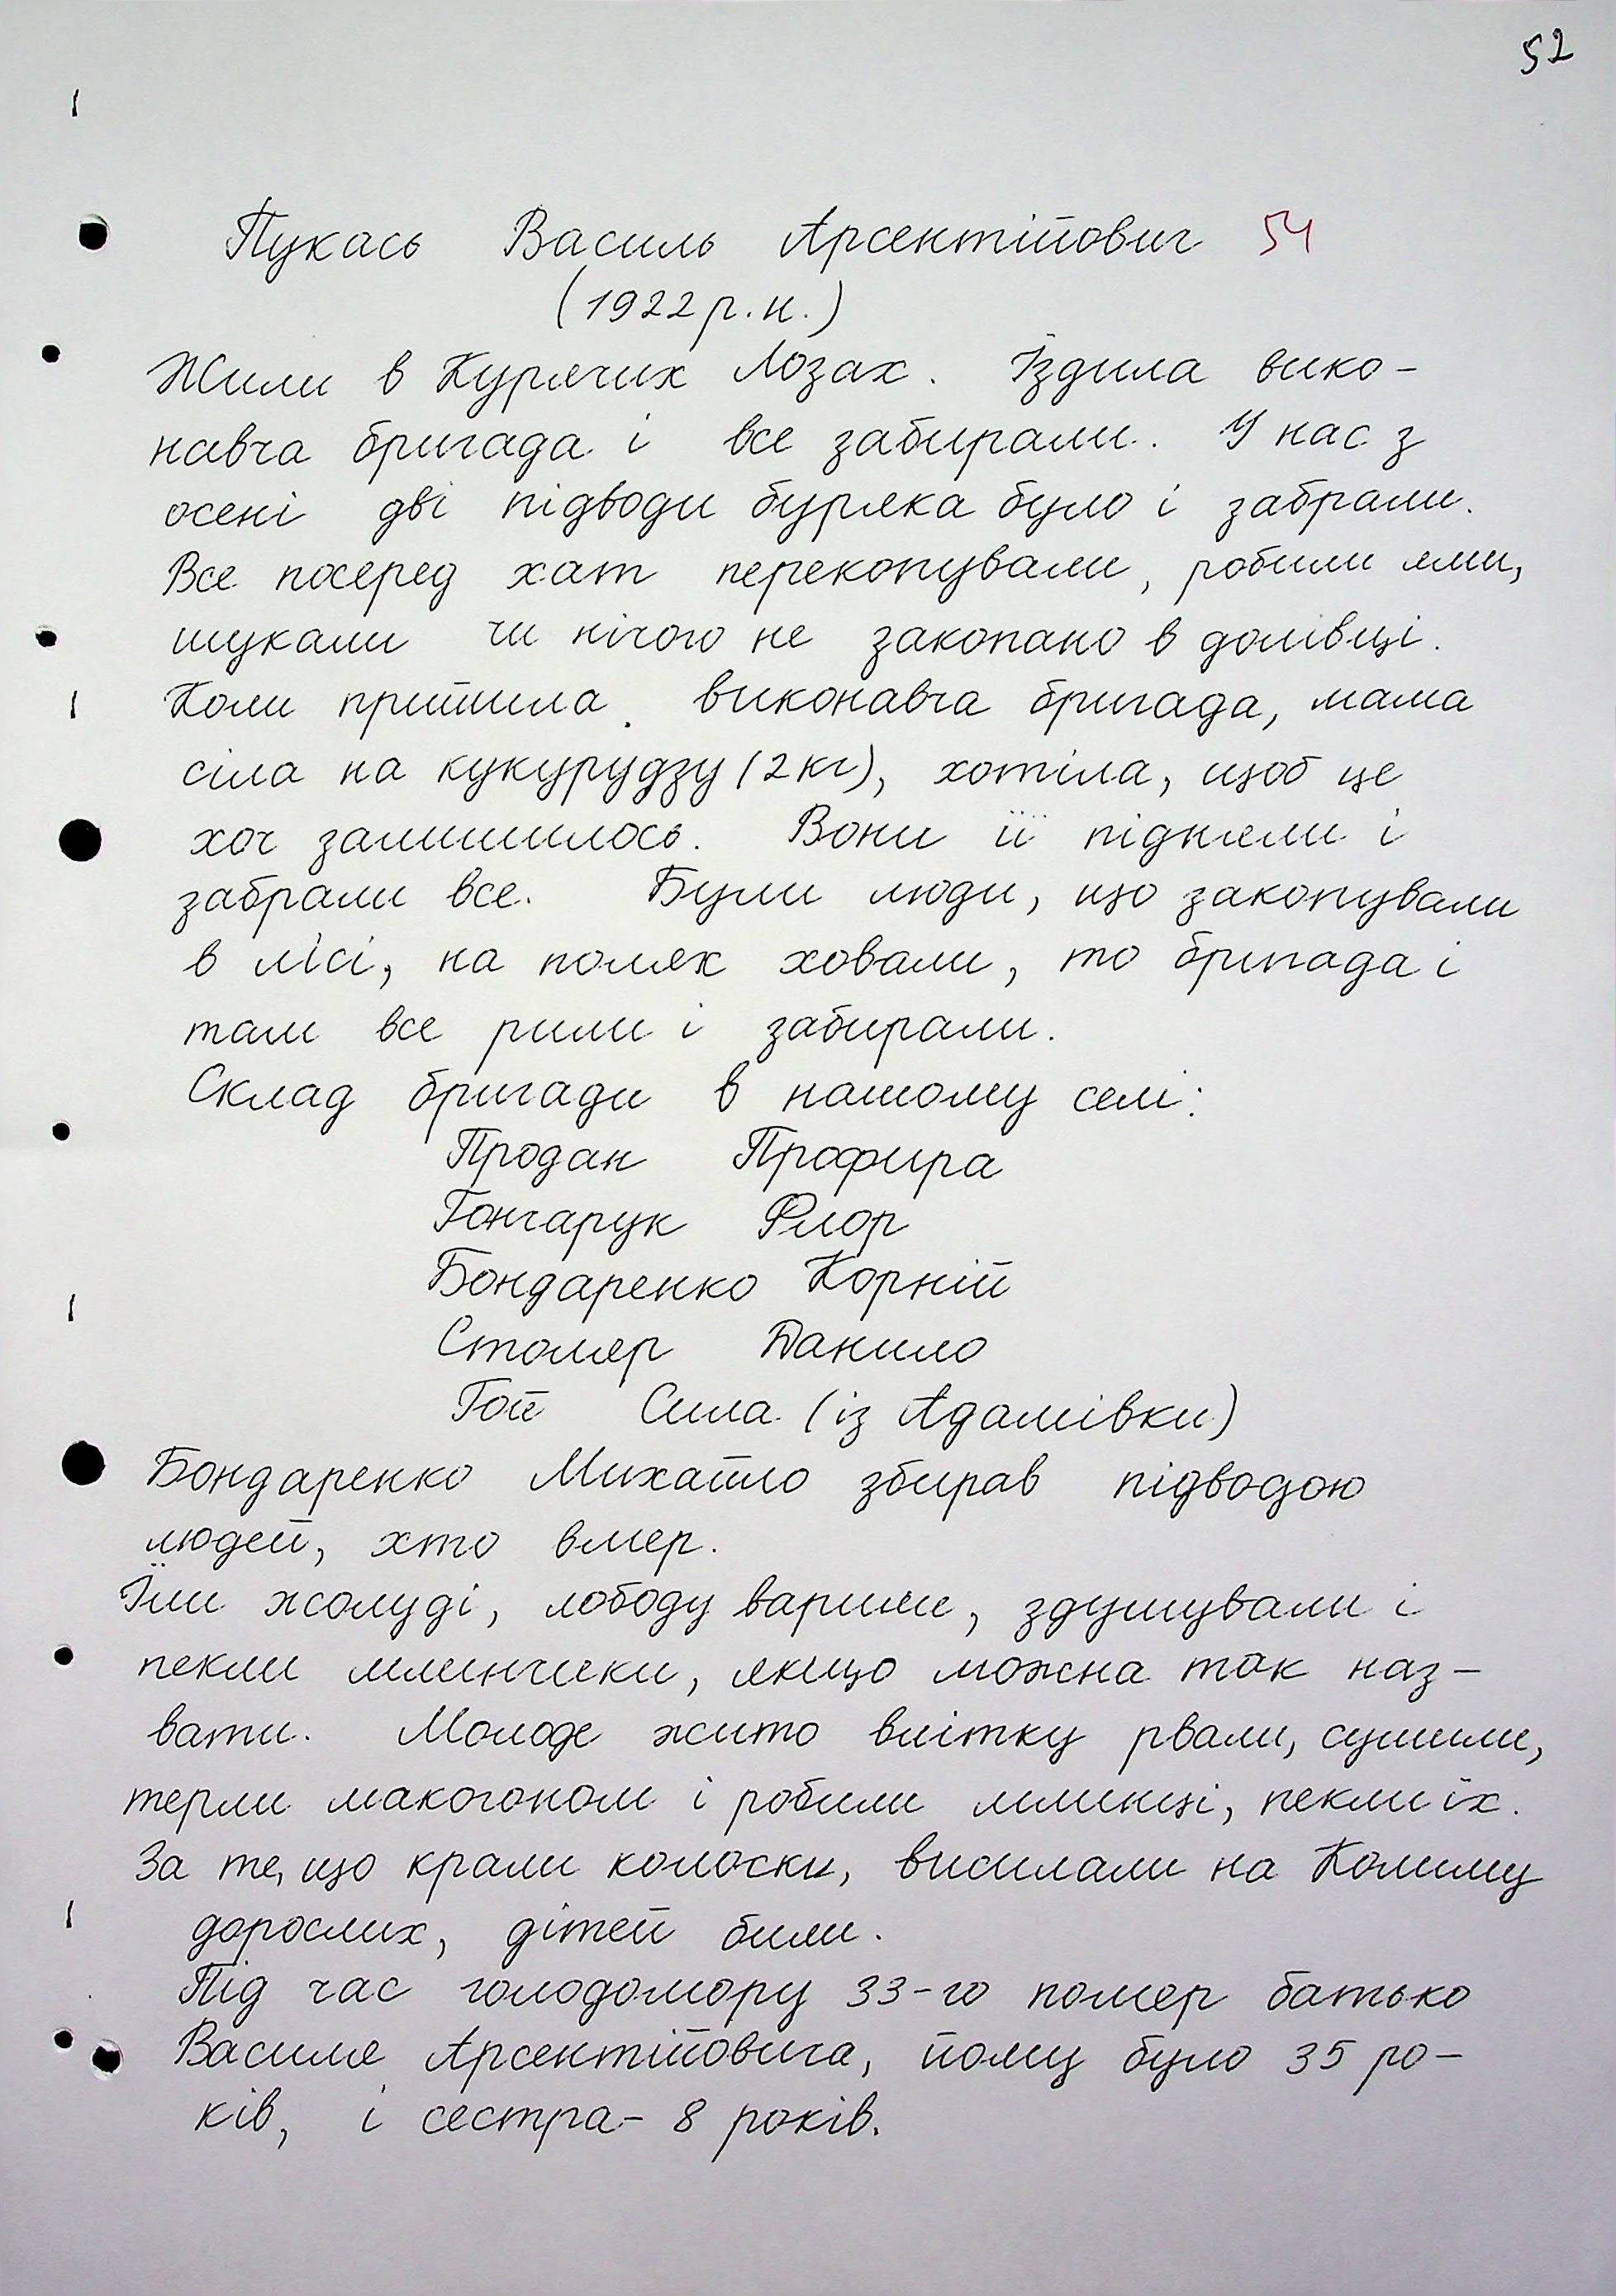 52
Пукась Василь Арсентійович 54
(1922 р.н.)
Жили в Курячих Лозах. Їздила вико-
навча бригада і все забирали. У нас з
осені дві підводи буряка було і забрали.
Все посеред хат перекопували, робили ями,
шукали чи нічого не закопано в долівці.
Коли прийшла виконавча бригада, мама
сіла на кукурудзу (2 кг), хотіла, щоб це
хоч залишилось. Вони її підняли і
забрали все. Були люди, що закопували
в лісі, на полях ховали, то бригада і
там все рили і забирали.
Склад бригади в нашому селі:
Продан Профира
Гончарук Флор
Бондаренко Корній
Столяр Данило
Гой Сила (із Адамівки)
Бондаренко Михайло збирав підводою
людей, хто вмер.
Їли жолуді, лободу варили, здушували і
пекли млинчики, якщо можна так наз-
вати. Молоде жито влітку рвали, сушили,
терли макогоном і робили млинці, пекли їх.
За те, що крали колоски, висилали на Колиму
дорослих, дітей били.
Під час голодомору 33-го помер батько
Василя Арсентійовича, йому було 35 ро-
ків, і сестра - 8 років.